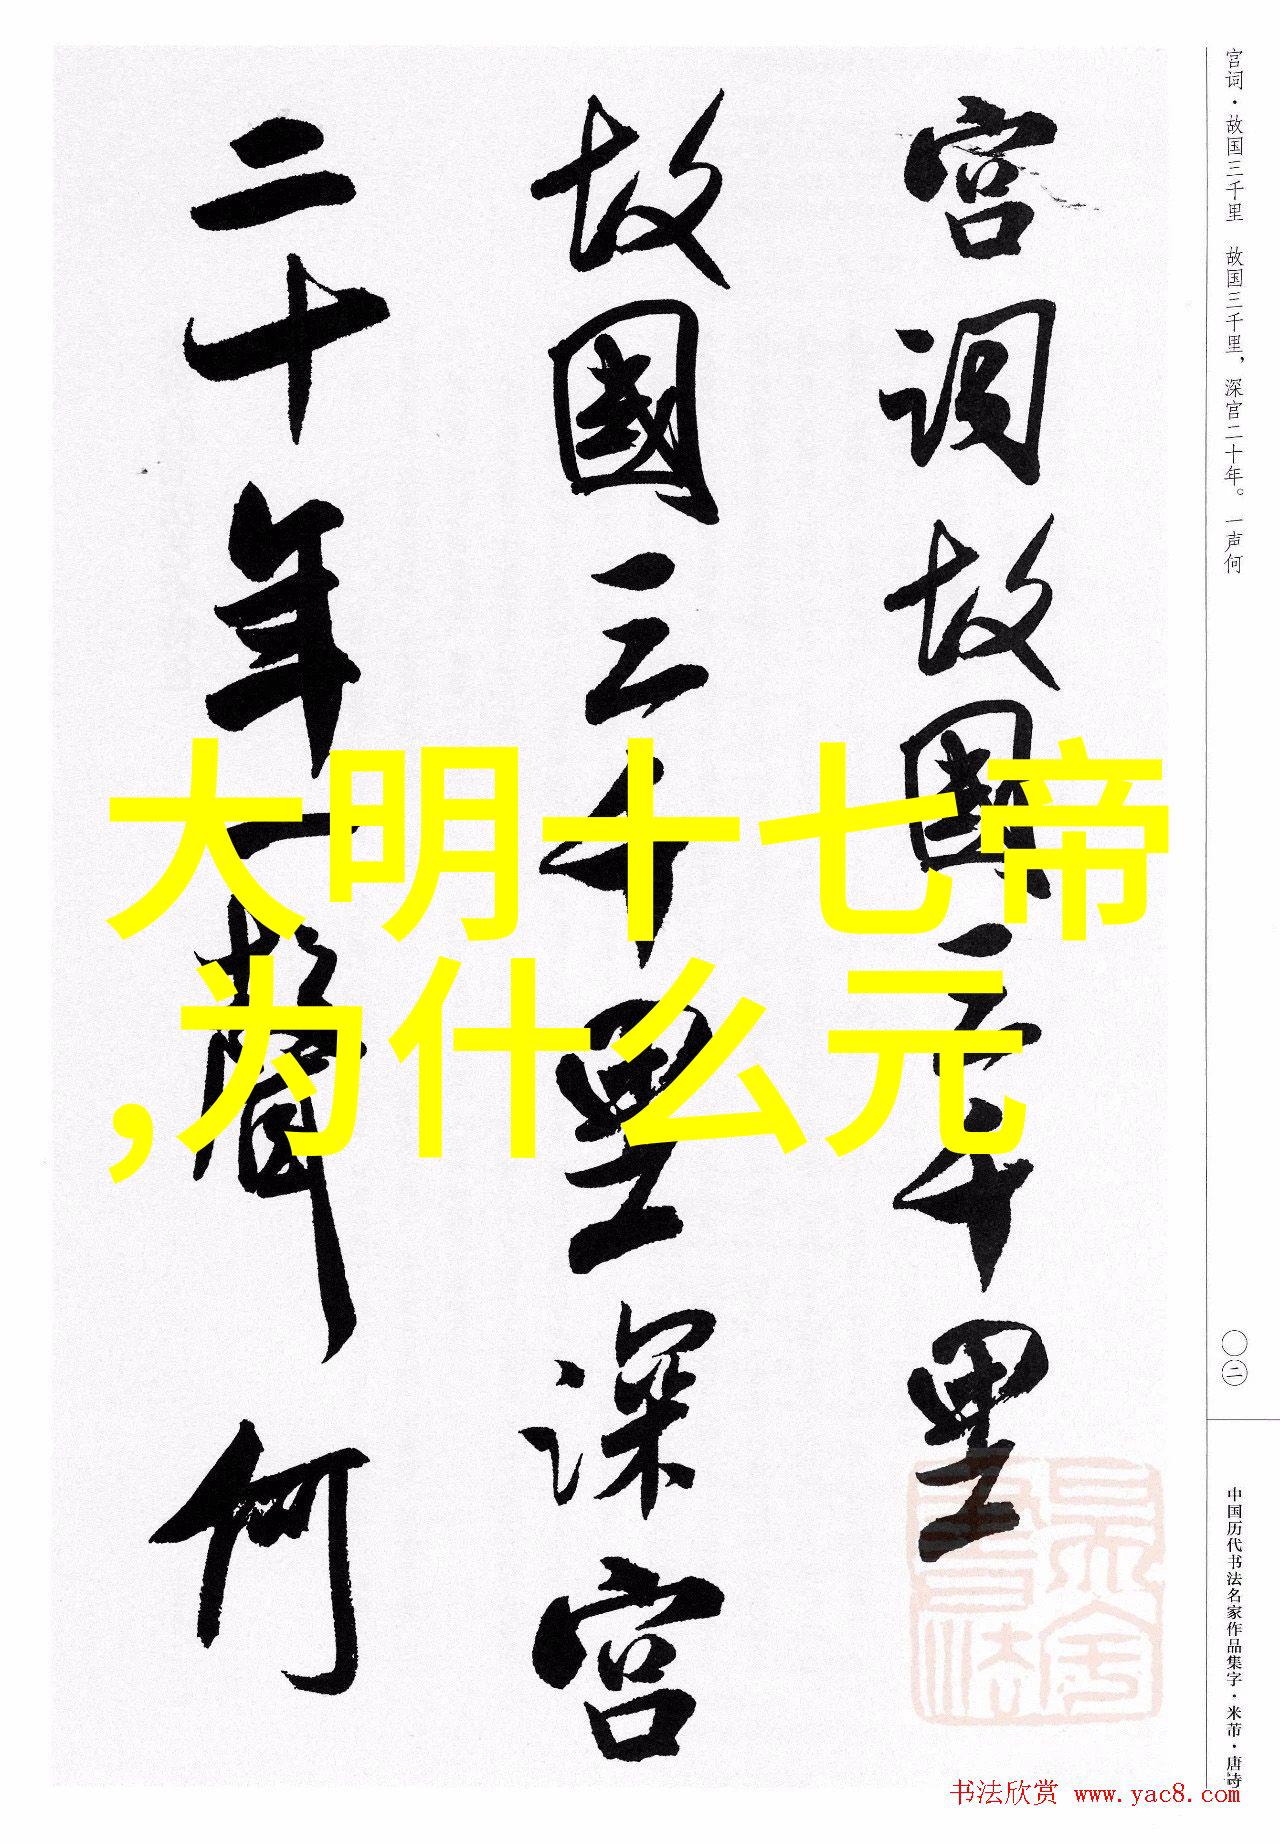 宫词·故国三千里 故国三千里，深宫二十年。一声何
宫词故国三千里
故國三千里深宫
二十年一聲何
大明十七帝
,为什么元
〇二
中国历代书法名家作品集字·米芾·唐诗
书法欣赏 www.yac8.com